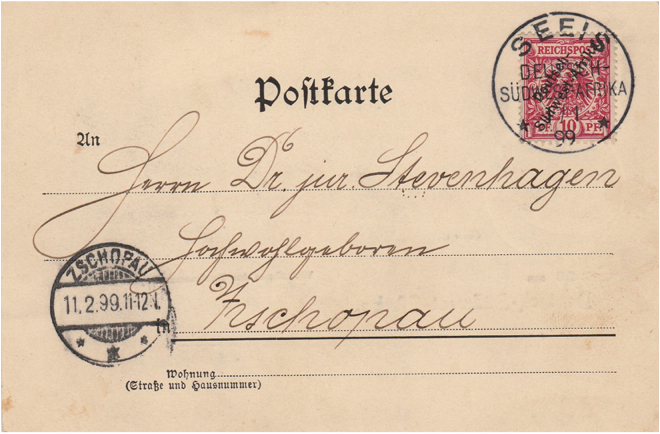 SEEIS
REICHSPOST
DEUTSCH-
SÜDWESTAFRIKA
1
99
10 PF.
Postkarte
An
Herrn Dr. jur Stevenhagen
Hochwohlgeboren
Zschopau
ZSCHOPAU
11.2.99.11-12
in
Wohnung
(Straße und Hausnummer)